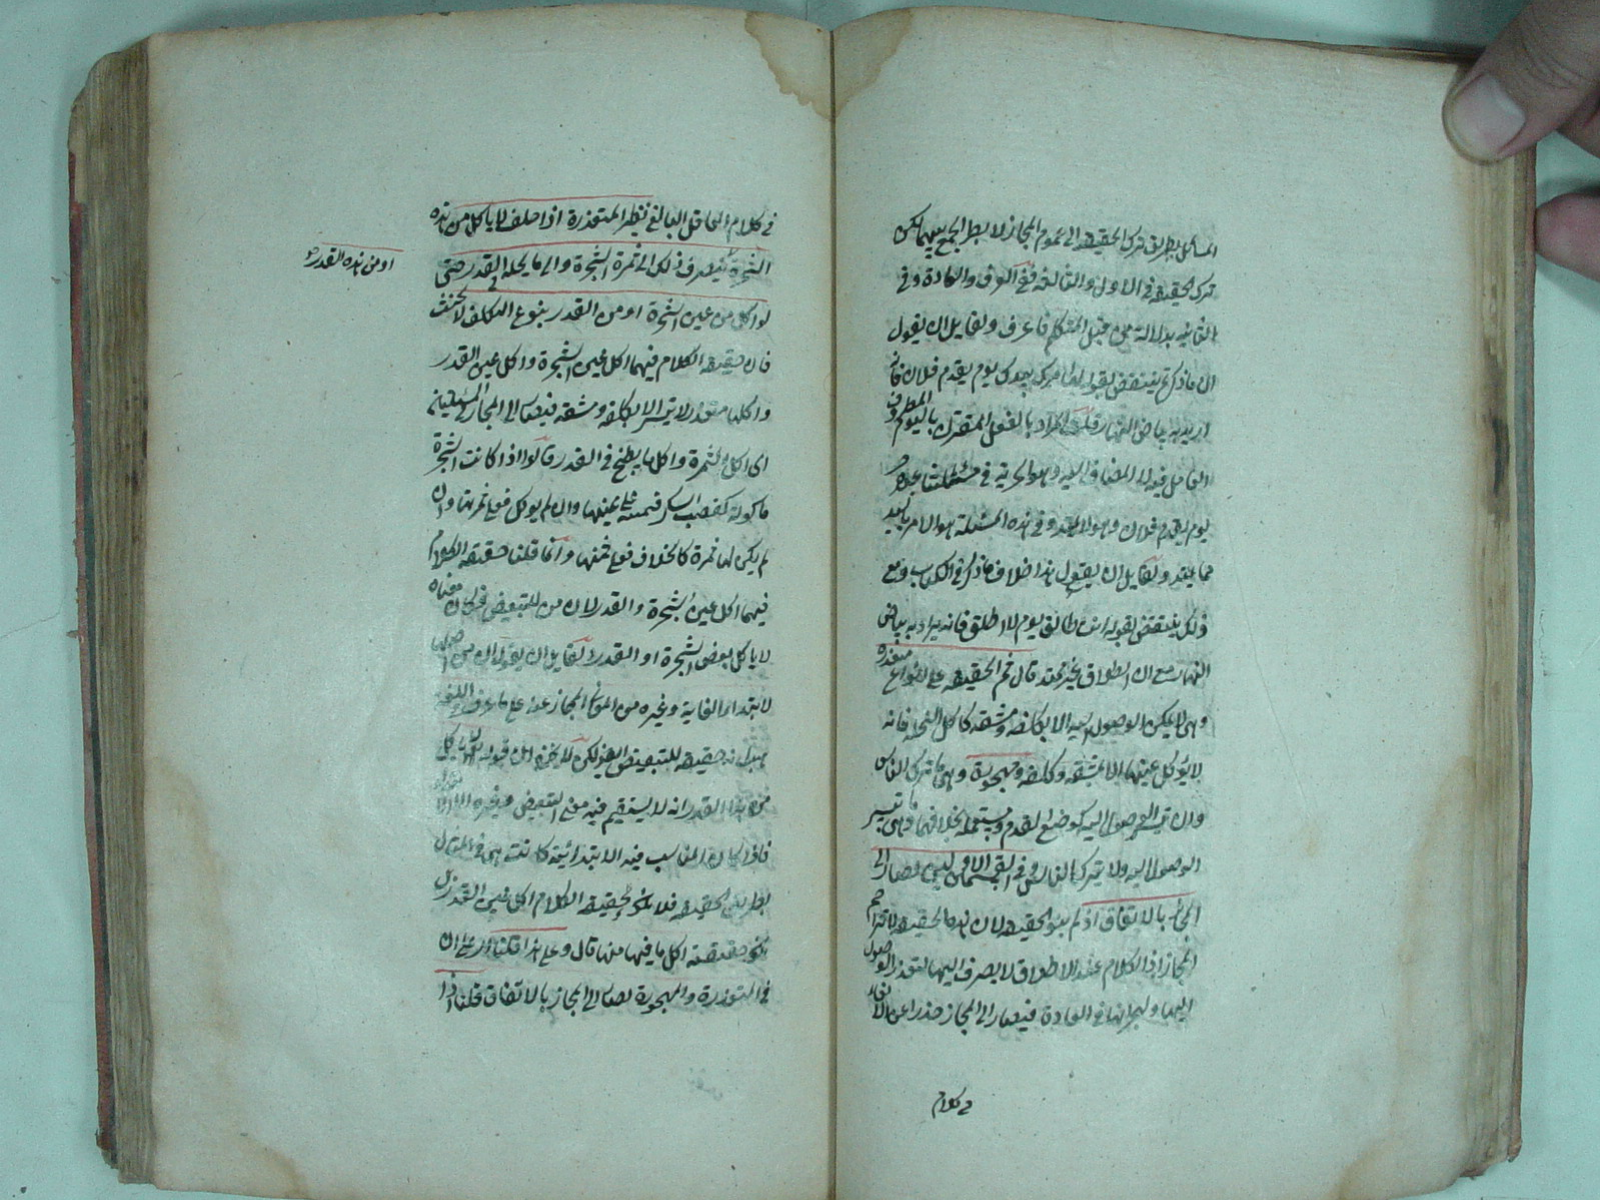 المسائل بطريق ترك الحقيقة الى عموم المجاز لا بطريق الجمع بينهما لكن
ترك الحقيقة في الاول والثالثة في العرف والعادة وفي
الثانية بدلالة من قبل المتكلم فاعرف ولقايل ان يقول
ان ما ذكرتم ينتقض بقوله امرك بيدك يوم يقدم فلان فانه
اريد به بياض النهار قلنا المراد بالفعل المقترن باليوم المظروف
العامل فيه لا المضاف اليه وهو الحرية في مسئلتنا
يوم يقدم فلان وهو لا يمتد وفي هذه المسئلة هو الامر باليد
مما يمتد ولقايل ان يقول هذا خلاف ما ذكر في الكتاب ومع
ذلك ينتقض بقوله انت طالق يوم لا اطلق فانه يراد به بياض
النهار مع ان الطلاق غير ممتد قال ثم الحقيقة على انواع متعذرة
وهي ما لا يمكن الوصول اليه الا بكلفة ومشقة كاكل النخلة فانه
لا يؤكل عينها الا بمشقة وكلفة ومهجورة وهي ما ترك الناس
وان تيسر الوصول اليه كوضع القدم ومستعملة بخلافهما وهي ما تيسر
الوصول اليه ولا يترك الناس وفي القسمين الاولين يصار الى
المجاز بالاتفاق اذ لم يبق الحقيقة لان هذه الحقيقة لا تزاحم
المجاز اذ الكلام عند الاطلاق لا يصرف اليها لتعذر الوصول
اليها ولهجرانها في العادة فيصار الى المجاز حذرا عن الالغاء
في كلام
في كلام العاقل البالغ نظير المتعذرة اذا حلف لا ياكل من هذه
الشجرة ينصرف ذلك الى ثمرة الشجرة والى ما يحله في القدر حتى
او من هذه القدر
لو اكل من عين الشجرة او من القدر بنوع التكلف لا يحنث
فان حقيقة الكلام فيهما اكل عين الشجرة واكل عين القدر
واكلها متعذر لا يتيسر الا بكلفة ومشقة فيصار الى المجاز
اى اكل الثمرة واكل ما يطبخ في القدر قالوا اذا كانت الشجرة
ماكولة كقصب السكر فيمينه على عينها وان لم يوكل فعلى ثمرتها وان
لم يكن لها ثمرة كالخلاف فعلى ثمنها وانما قلنا حقيقة الكلام
فيهما اكل عين الشجرة والقدر لان من للتبعيض فكان معناه
لا ياكل بعض الشجرة او القدر ولقايل ان يقول ان من اصلها
لابتداء الغاية وغيره من المعاني المجاز عنه على ما عرف
حقيقة للتبعيض ايضا لكن لا يخفى ان قوله لا ياكل
من هذا القدر انه لا يستقيم فيه معنى التبعيض وغيره
فاذا كان المناسب فيه الابتدائية كانت هي في المنزل
بطريق الحقيقة فلا يكون حقيقة الكلام اكل عين القدر بل
يكون حقيقته اكل ما فيها منها قال وعلى هذا قلنا اى على ان
في المتعذرة والمهجورة يصار الى المجاز بالاتفاق قلنا اذا